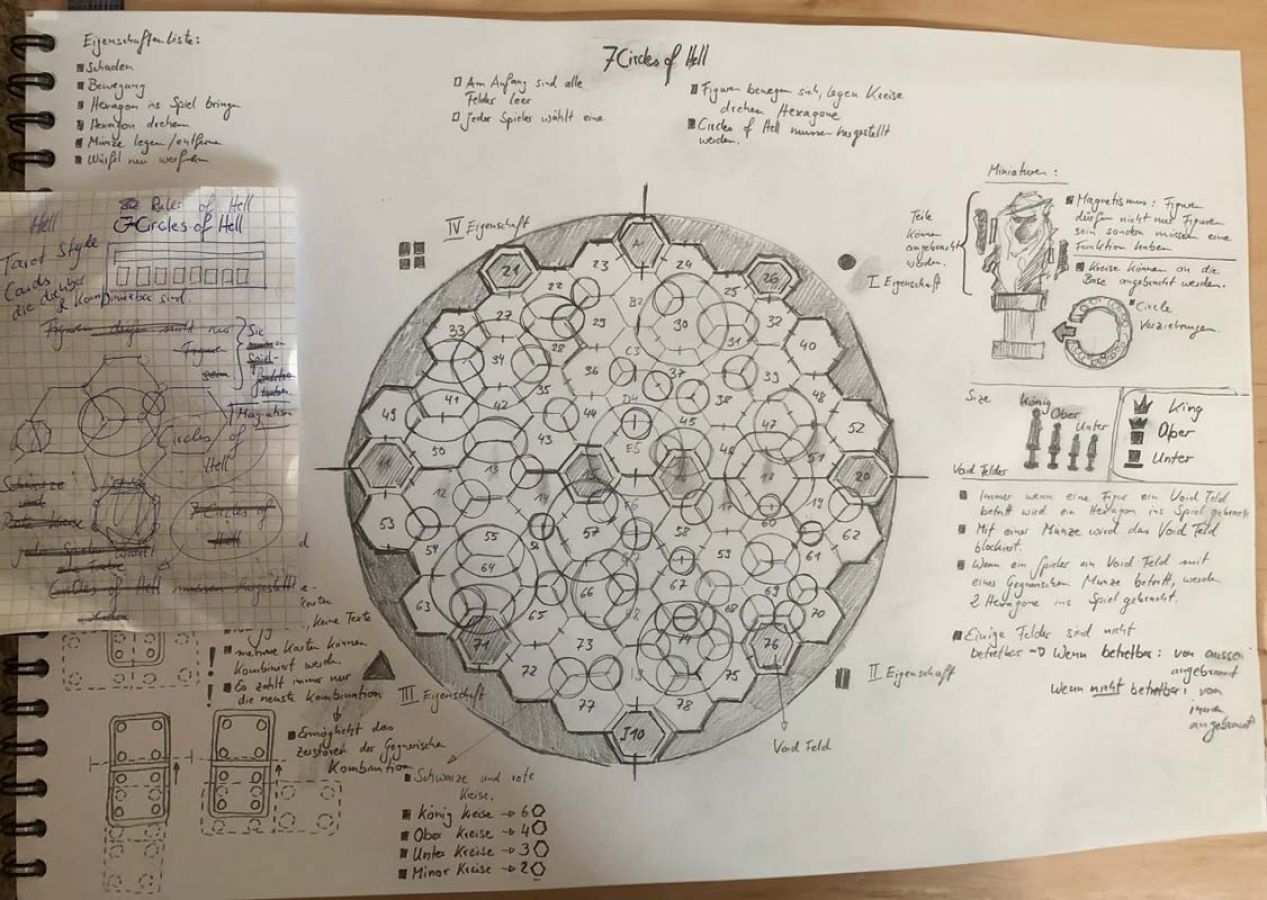 7 Circles of Hell
Eigenschaften liste:
Schaden
Bewegung
Hexagon ins Spiel bringen
Hexagon drehen
Münze legen/entfernen
Würfel neu werfen
Am Anfang sind alle
Felder leer
Jeder Spieler wählt eine
Figuren bewegen sich, legen Kreise
drehen Hexagone
Circles of Hell müssen hergestellt
werden.
Hell
Rules of Hell
7 Circles of Hell
Tarot Style
Cards
die kombinierbar sind.
Figuren dürfen nicht nur
Figuren
sein
Sie
Spiel-
Circles of
Hell
7 Circles of
Hell
Circles of Hell müssen hergestellt
IV Eigenschaft
I Eigenschaft
II Eigenschaft
III Eigenschaft
Teile
können
angebracht
werden.
Miniaturen:
Magnetismus: Figuren
dürfen nicht nur Figuren
sein sondern müssen eine
Funktion haben
Kreise können an die
Base angebracht werden.
Circle
Verziehrungen.
Size
König
Ober
Unter
King
Ober
Unter
Void Felder
Immer wenn eine Figur ein Void Feld
betritt wird ein Hexagon ins Spiel gebracht
Mit einer Münze wird das Void Feld
blockiert.
Wenn ein Spieler ein Void Feld mit
einer Gegnerischen Münze betritt, werden
2 Hexagone ins Spiel gebracht.
Einige Felder sind nicht
betretbar -> Wenn betretbar: von aussen
angebrannt
Wenn nicht betretbar: von
innen
angebrannt
21 23 24 26
22 B2 25
27 29 30 32
33 28 C3 31 40
34 36 37 39
41 35 D4 38 48
49 42 44 45 47 52
50 43 E5 46 51
11 13 18 20
12 14 17 19
53 57 58 60 62
55 56 59 61
54 64 66 67 69
63 65 68 70
71 73 74 76
72 75
77 78
J10
Void Feld
keine Texte
mehrere Karten können
kombiniert werden.
Es zählt immer nur
die neuste Kombination
Ermöglicht das
zerstören der Gegnerischen
Kombination
Schwarze und rote
Kreise.
König Kreise -> 6
Ober Kreise -> 4
Unter Kreise -> 3
Minor Kreise -> 2